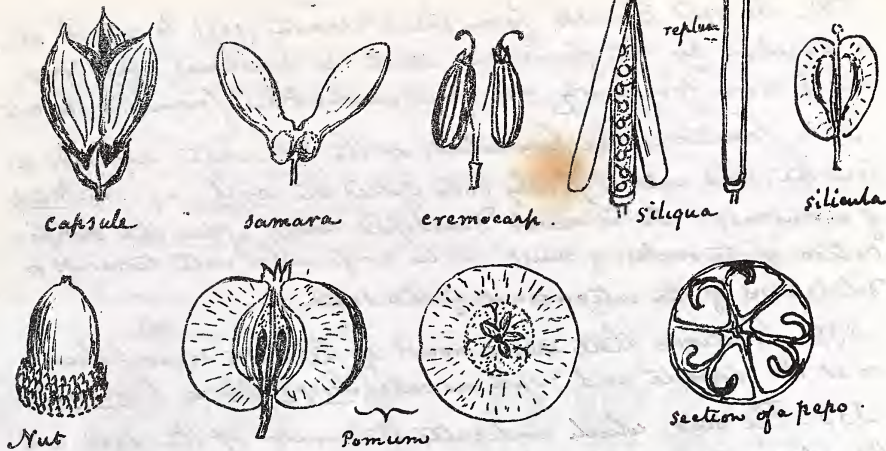 replum
capsule
samara
cremocarp.
siliqua
silicula
Nut
Pomum
section of a pepo.